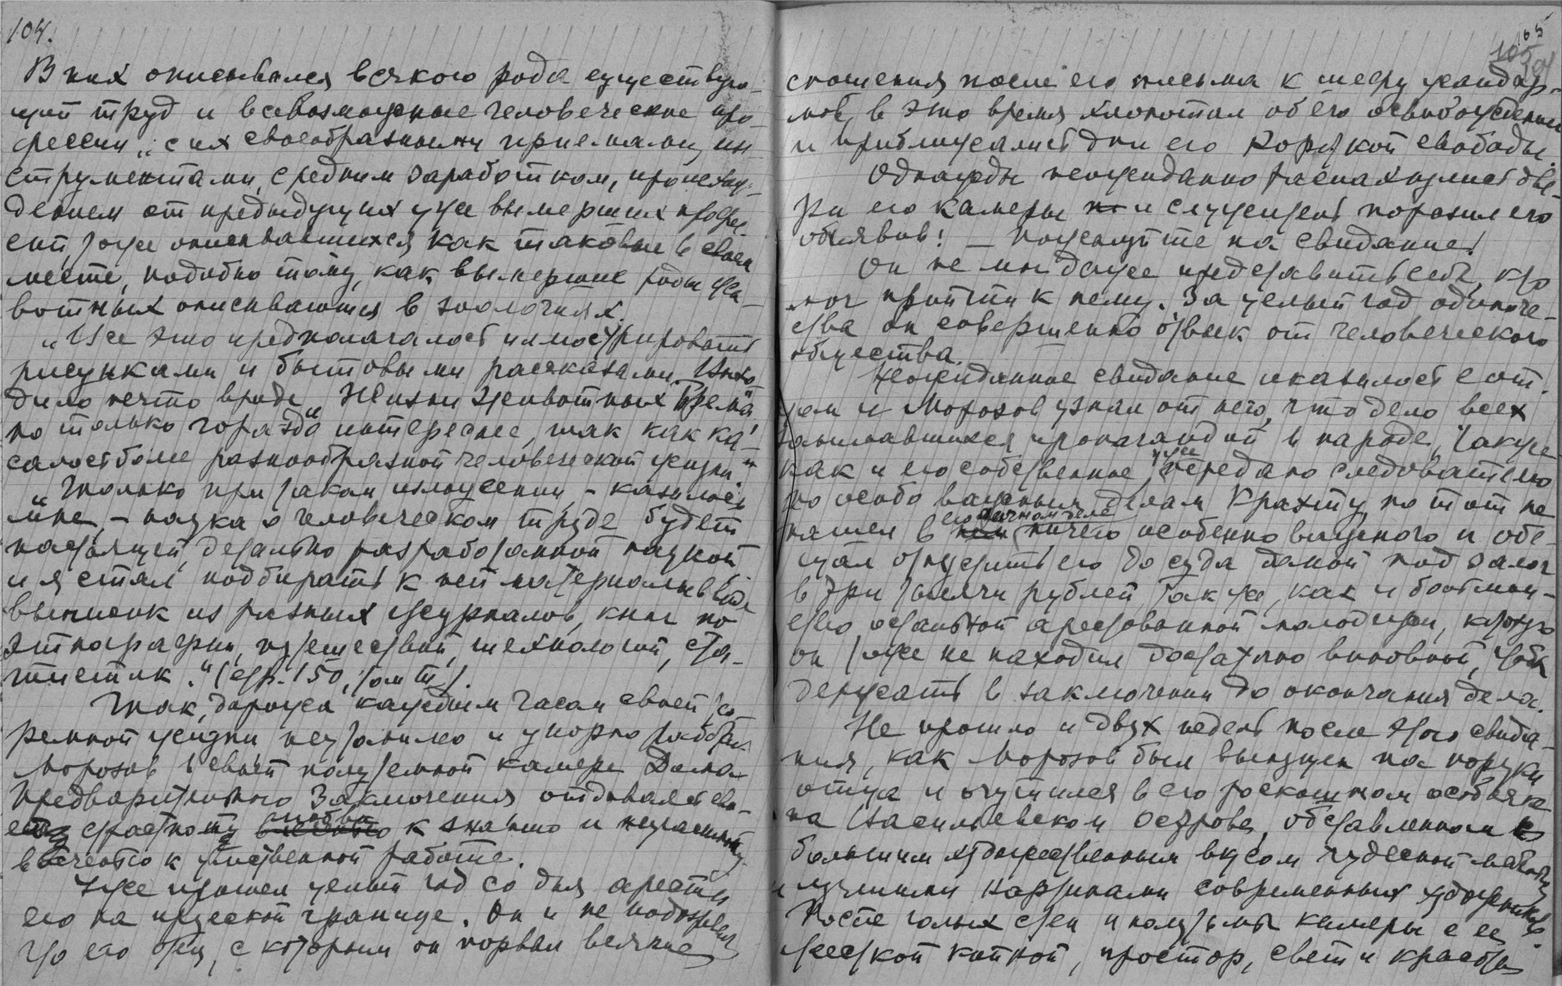 104.
В них описывался всякого рода существую-
щий труд и всевозможные человеческие про-
фессии „с их своеобразными приемами, ин-
струментами, средним заработком, происхож-
дением от предыдущих уже вымерших профес-
сий, тоже описывавшихся как таковые в своем
месте, подобно тому, как вымершие роды жи-
вотных описываются в зоологиях.
„Все это предполагалось иллюстрировать
рисунками и бытовыми рассказами. Выхо-
дило нечто вроде „Жизни животных" Брема
но только гораздо интереснее, так как ка-
салось более разнообразной человеческой жизни."
„Только при таком изложении – казалось
мне, – наука о человеческом труде будет
настоящей, детально разработанной наукой
и я стал подбирать к ней материалы в виде
выписок из разных журналов, книг по
этнографии, путешествий, технологий, ста-
тистик." (стр. 150, том III).
Так, дорожа каждым часом своей тю-
ремной жизни неутомимо и упорно работал
Морозов в своей полутемной камере Дома
Предварительного Заключения отдаваясь сво-
ей страстному к знанию и неугасимому
влечению к умственной работе.
Уже прошел целый год со дня ареста
его на прусской границе. Он и не подозревал
что его отец, с которым он порвал всякие
105
сношения после его письма к шефу жандар-
мов, в это время хлопотал об его освобождении
и приближались дни его короткой свободы.
Однажды неожиданно распахнулись две-
ри его камеры и служитель поразил его
объявив: – пожалуйте на свидание!
Он не мог даже представить себе, кто
мог прийти к нему. За целый год одиноче-
ства он совершенно отвык от человеческого
общества.
Неожиданное свидание оказалось с от-
цом и Морозов узнал от него, что дело всех
занимавшихся пропагандой в народе, также
как и его собственное, уже передано следователю
по особо важным делам Крахту, но тот не
нашел в его личном деле ничего особенно важного и обе-
щал отпустить его до суда домой под залог
в три тысячи рублей так же, как и большин-
ство остальной арестованной молодежи, которую
он тоже не находил достаточно виновной, чтоб
держать в заключении до окончания дела.
Не прошло и двух недель после этого свида-
ния, как Морозов был выпущен на поруки
отца и очутился в его роскошном особняке
на Васильевском Острове, обставленном с
большим художественным вкусом чудесной мебелью
и лучшими картинами современных художников.
После голых стен и полутьмы камеры с ее
жесткой койкой, простор, свет и красота